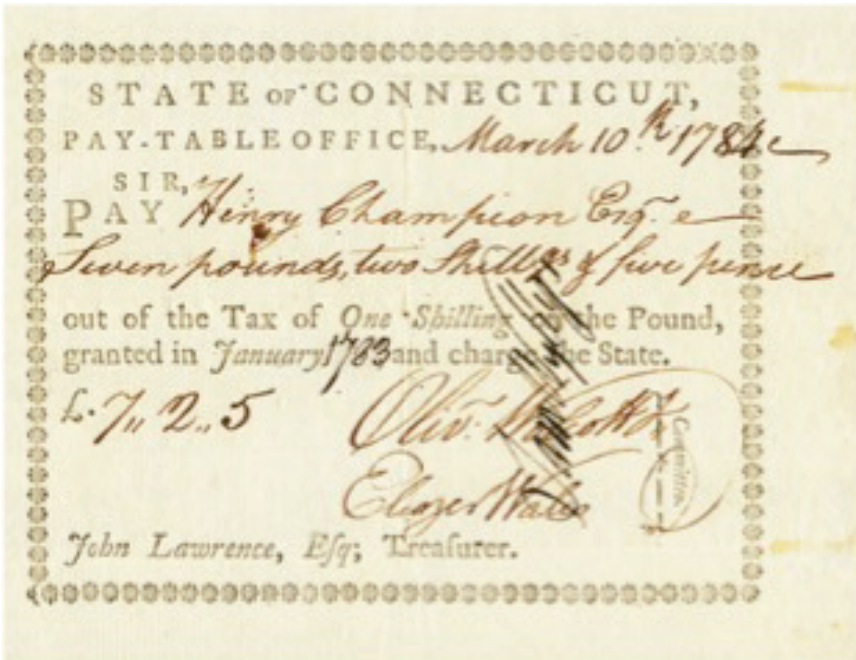 STATE OF CONNECTICUT,
PAY-TABLE OFFICE, March 10.th 1784
SIR,
PAY Henry Champion Esqr.
Seven pounds, two Shillgs & five pence
out of the Tax of One Shilling on the Pound,
granted in January 1783 and charge the State.
£.7,, 2,, 5
Olivr. Wolcott Jr
Committee.
Eliezer Wales
John Lawrence, Esq; Treasurer.